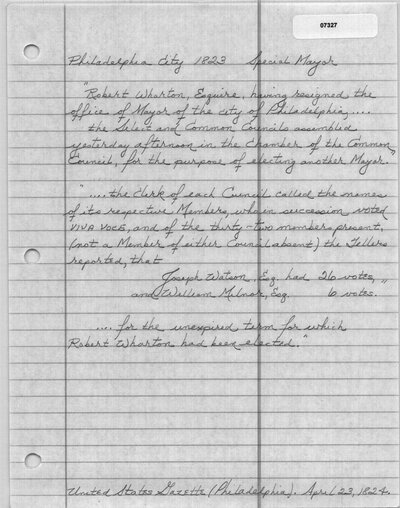 07327
Philadelphia City 1823 Special Mayor
"Robert Wharton, Esquire, having resigned the
office of Mayor of the city of Philadelphia, ....
the Select and Common Councils assembled
yesterday afternoon in the Chamber of the Common
Council, for the purpose of electing another Mayor."
".... the clerk of each Council called the names
of its respective Members, who in succession voted
VIVA VOCE, and of the thirty-two members present,
(not a Member of either Council absent) the Tellers
reported, that
Joseph Watson, Esq. had 26 votes, "
and William Milnor, Esq. 6 votes.
.... for the unexpired term for which
Robert Wharton had been elected."
United States Gazette (Philadelphia). April 23, 1824.